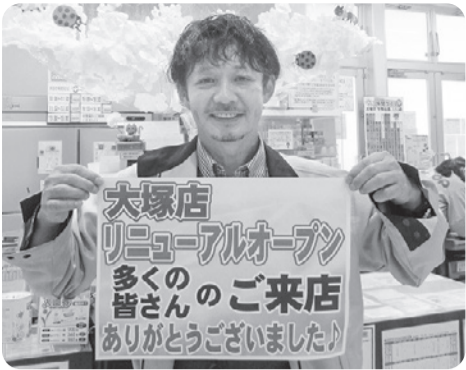 大塚店
リニューアルオープン
多くの
皆さん
の
ご来店
ありがとうございました♪